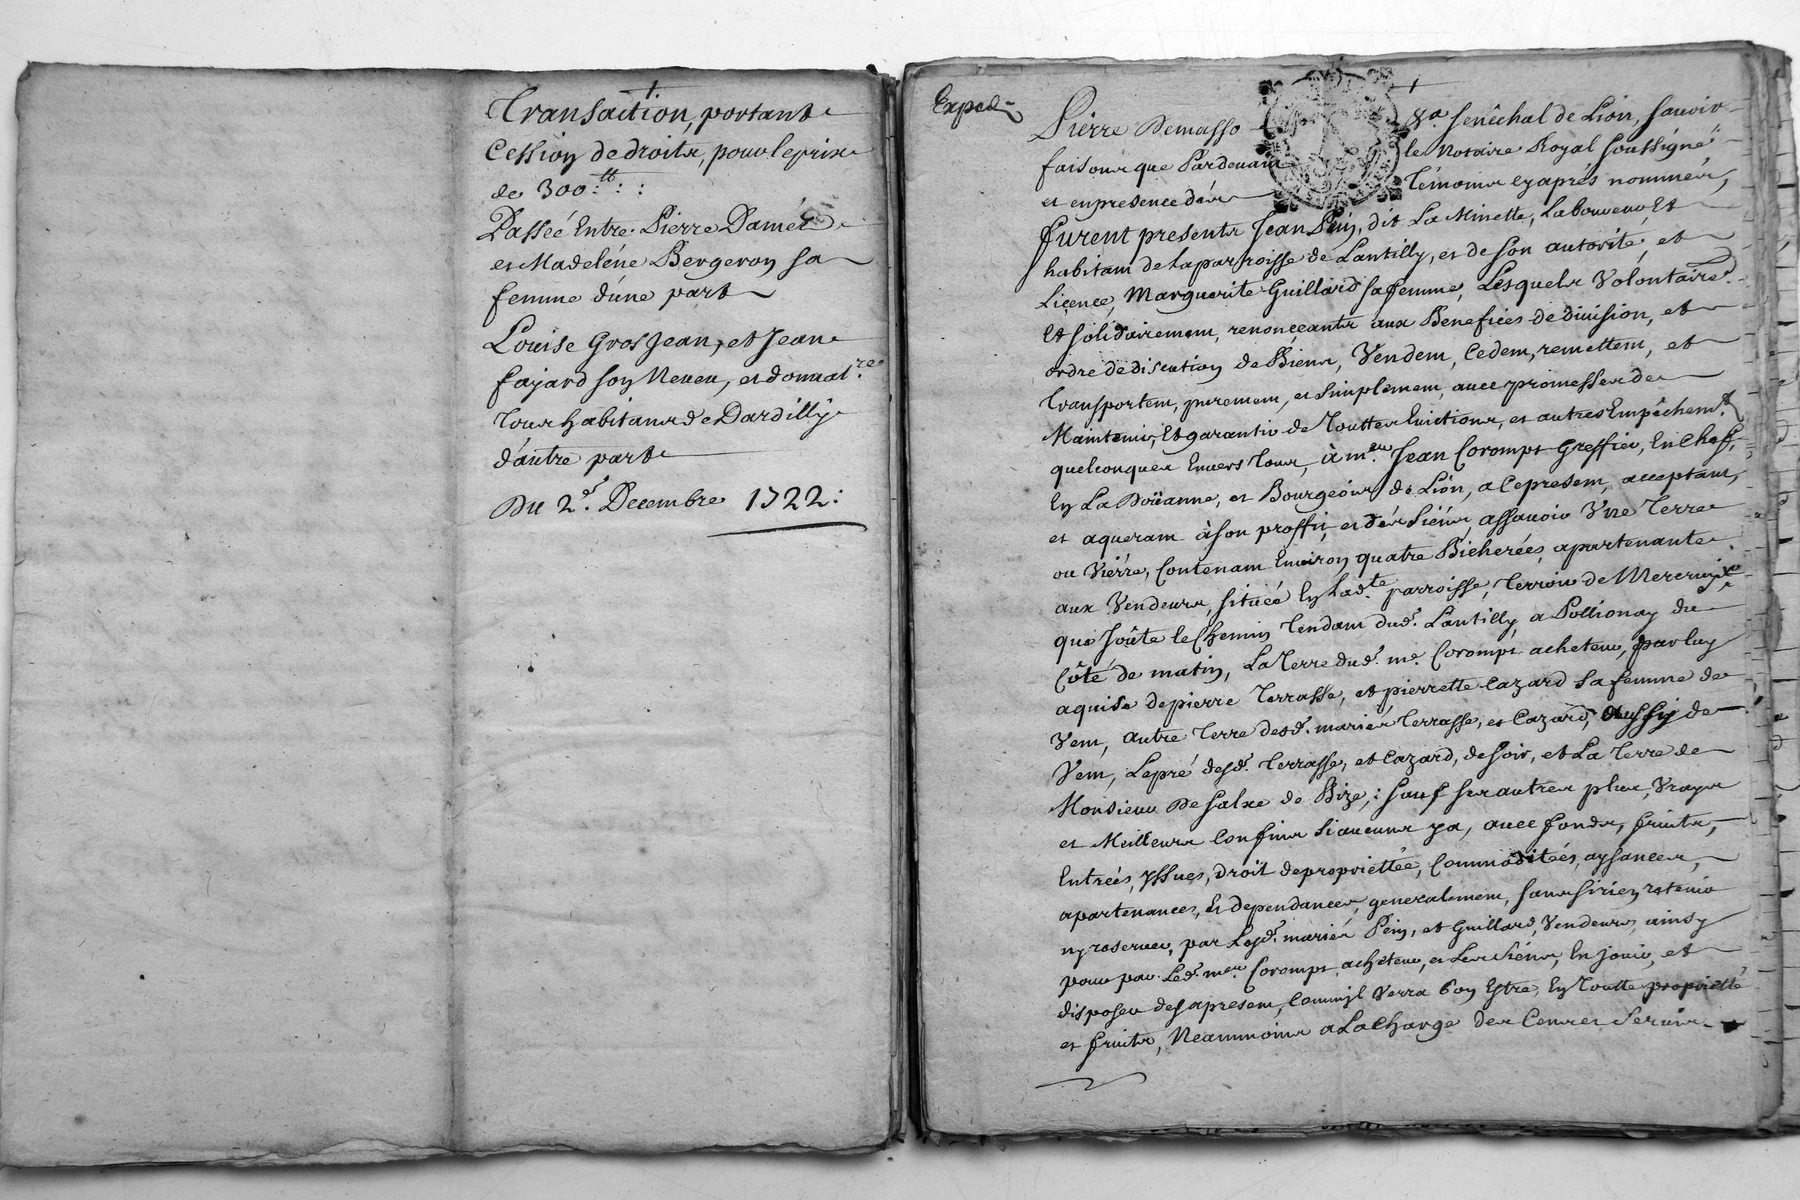 Transaction, portant
Cession de droits, pour le prix
de 300.tt: :
Passée Entre Pierre Damés
et Madeléne Bergeron sa
femme d'une part
Louise GrosJean, et Jean
fayard son Neveu, et donnat.re
tous habitans de Dardilly
d'autre part
Du 2.e Decembre 1722:
Exped.
Pierre Demasso &a senéchal de Lion, sauoir
faisons que Pardeuant le Notaire Royal soussigné
et en presence des témoins cy aprés nommés,
furent presents Jean Pein, dit La Minette, laboureur Et
habitant de la parroisse de Lantilly, et de son autorité, et
Licence, Marguerite Guillard sa femme, Lesquels Volontaire.
Et solidairement, renonçeants aux Benefices de diuision, et
ordre de discution de Biens, Vendent, Cedent, remettent, et
transportent, purement, et simplement, auec promesse de
Maintenir, Et garantir de toutte Euictions, et autres Empêchem.t
quelconques Enuers tous, à m.re Jean Corompt Greffier, En Chef,
En La Doüanne, et Bourgeois de Lion, a ce present, acceptant,
et aquerant à son proffit, et des siéns assauoir Vne Terre
ou Viérre, Contenant Enuiron quatre Bicherées, apartenante
aux Vendeurs, situéé En lad.te parroisse, terroir de
que joûte le Chemin tendant dud. Lantilly, a Pollionay du
Côté de matin, La Terre dud. m.e Corompt acheteur, par luy
aquise de pierre Terrasse, et pierrette Cazard sa femme de
Vent, autre terre desd. mariés Terrasse, et Cazard, Aussy de
Vent, Le pré desd. Terrasse, et Cazard, de soir, et La terre de
Monsieur De Salxe de Bize,: sauf ses autres plus, Vrays
et Meilleurs Confins si aucuns y a, auec fonds, fruits,
Entrées, yssues, droit de propriettée, Commoditeés, aysances,
apartenances, Et dependances, generalement, sans si rien retenir
ny reseruer, par Lesd. mariés Pein, et Guillard, Vendeurs, ainsy
pour par Led. m.re Corompt acheteur, et Les siéns, En jouir, et
disposer des apresent, Comm'jl Verra bon Estre, En toutte proprietté
et fruits, Neanmoins a La Charge des Cens et Seruis